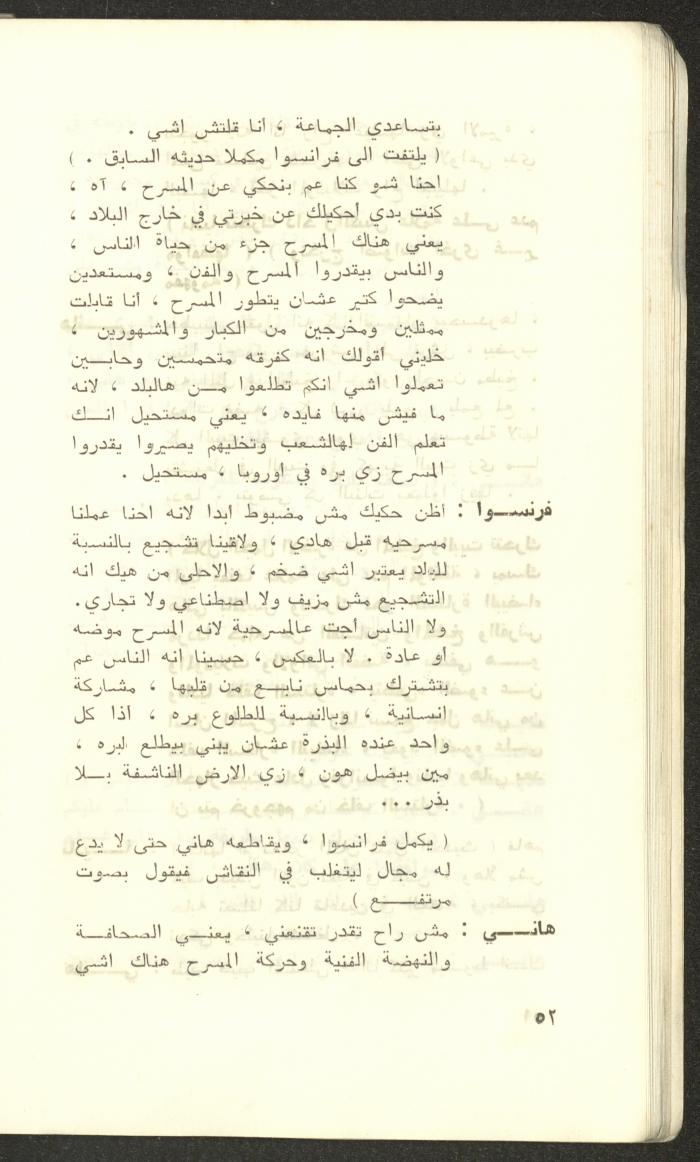 بتساعدي الجماعة ، انا قلتش اشي .
( يلتفت الى فرانسوا مكملا حديثه السابق . )
احنا شو كنا عم بنحكي عن المسرح ، آه ،
كنت بدي أحكيلك عن خبرتي في خارج البلاد ،
يعني هناك المسرح جزء من حياة الناس ،
والناس بيقدروا المسرح والفن ، ومستعدين
يضحوا كتير عشان يتطور المسرح ، أنا قابلت
ممثلين ومخرجين من الكبار والمشهورين ،
خليني أقولك انه كفرقه متحمسين وحابـــين
تعملوا اشي انكم تطلعوا مـــن هالبلد ، لانه
ما فيش منها فايده ، يعني مستحيل انـــك
تعلم الفن لهالشعب وتخليهم يصيروا يقدروا
المسرح زي بره في اوروبا ، مستحيل .
فرنســـوا : أظن حكيك مش مضبوط ابدا لانه احنا عملنا
مسرحيه قبل هادي ، ولاقينا تشجيع بالنسبة
للبلد يعتبر اشي ضخم ، والاحلى من هيك انه
التشجيع مش مزيف ولا اصطناعي ولا تجاري.
ولا الناس أجت عالمسرحية لانه المسرح موضه
أو عادة . لا بالعكس ، حسينا انه الناس عم
بتشترك بحماس نابـــع من قلبها ، مشاركة
انسانية ، وبالنسبة للطلوع بره ، اذا كل
واحد عنده البذرة عشان يبني بيطلع لبره ،
مين بيضل هون ، زي الارض الناشفة بـــلا
بذر ...
( يكمل فرانسوا ، ويقاطعه هاني حتى لا يدع
له مجال ليتغلب في النقاش فيقول بصوت
مرتفـــع )
هانـــي : مش راح تقدر تقنعني ، يعنـــي الصحافـــة
والنهضة الفنية وحركة المسرح هناك اشي
٥٢